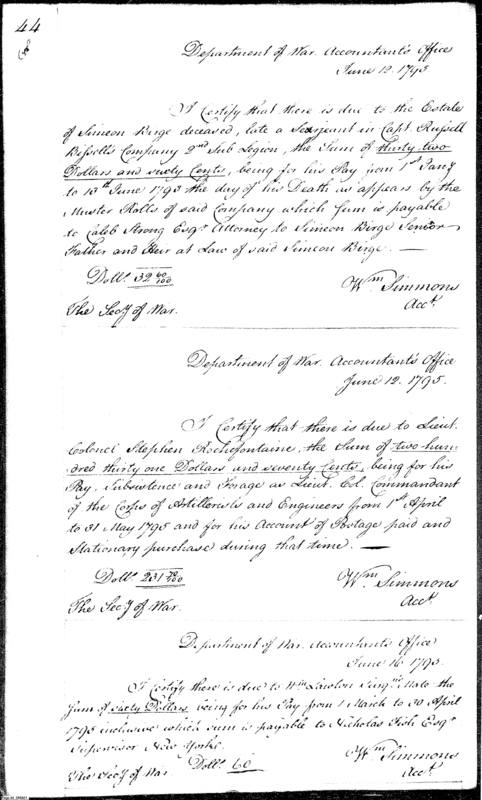 44
Department of War. Accountant's Office
June 12. 1795
I Certify that there is due to the Estate
of Simeon Birge deceased, late a Sergeant in Capt. Russell
Bissell's Company 2nd Sub Legion, the Sum of thirty two
Dollars and sixty Cents, being for his Pay from 1st Jany
to 13th June 1793 the day of his Death as appears by the
Muster Rolls of said Company which Sum is payable
to Caleb Strong Esqr. Attorney to Simeon Birge Senior
Father and Heir at Law of said Simeon Birge. —
Dolls. 32 60/100
Wm. Simmons
Acct.
The Secy of War.
Department of War. Accountant's Office
June 12. 1795.
I Certify that there is due to Lieut.
Colonel Stephen Rochefontaine, the Sum of two hun
dred thirty one Dollars and seventy Cents, being for his
Pay, Subsistence and Forage as Lieut. Col. Commandant
of the Corps of Artillerists and Engineers from 1st April
to 31 May 1795 and for his Account of Postage paid and
Stationary purchase during that time. —
Dolls. 231 70/100
Wm. Simmons
Acct.
The Secy of War.
Department of War. Accountants Office
June 16. 1795.
I Certify there is due to Wm Lawton Surgns Mate the
Sum of sixty Dollars being for his Pay from 1 March to 30 April
1795 inclusive which sum is payable to Nicholas Fish Esqr
Supervisor New Yorke.
Wm Simmons
Acct.
The Secy of War. Dolls. 60